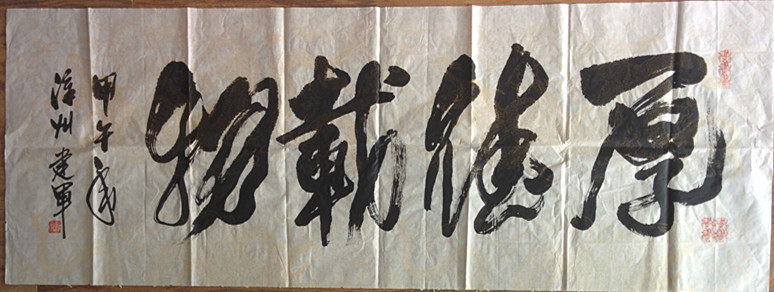 厚德載物
甲午年
漳州建軍